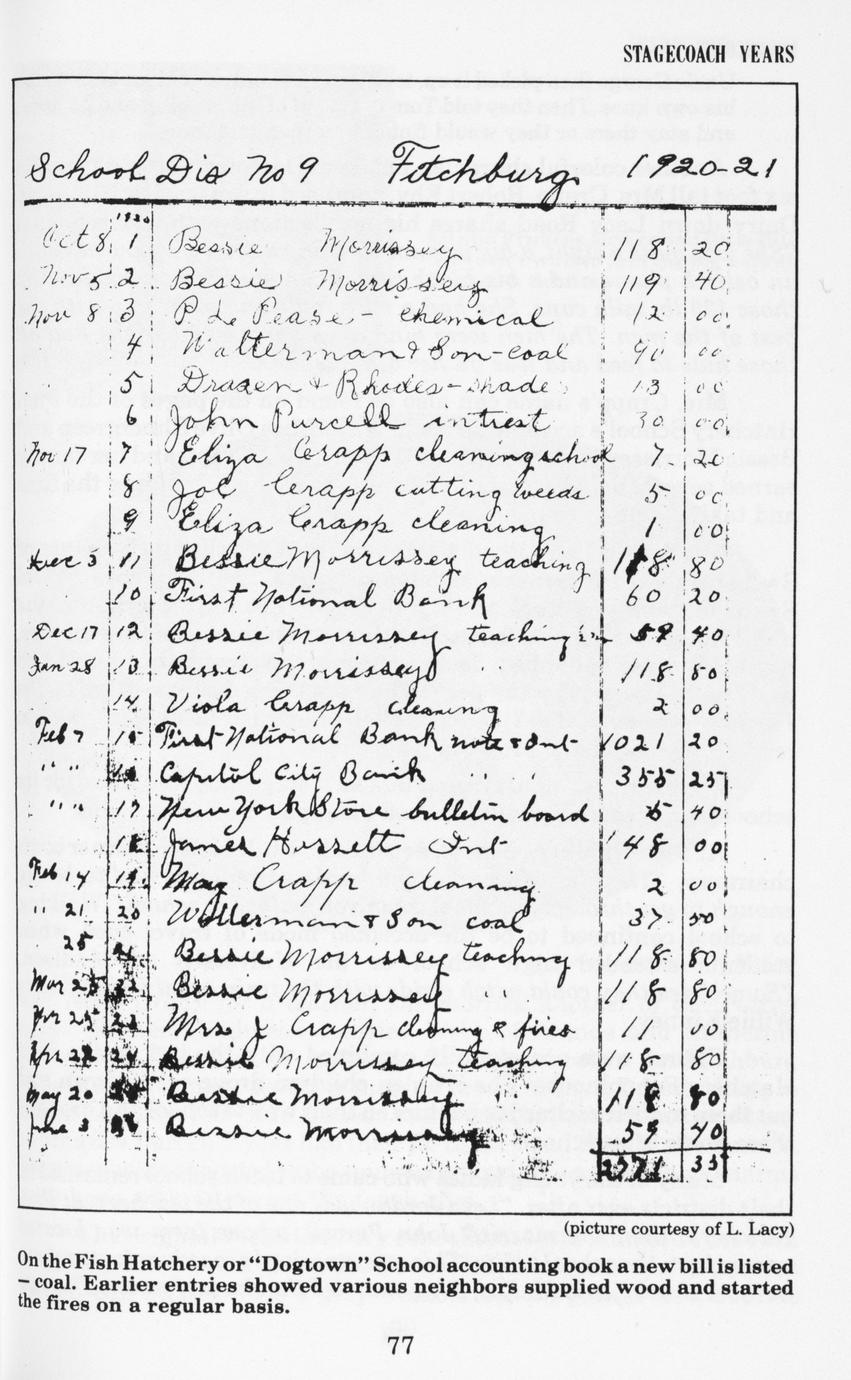 STAGECOACH YEARS
School Dis No 9 Fitchburg 1920-21
1920
Oct 8 1 Bessie Morrissey 118 20
Nov 5 2 Bessie Morrissey 119 40
Nov 8 3 P. Le Pease - chemical 12 00
4 Walterman & Son - coal 00
5 Drazen & Rhodes - shade 13 00
6 John Purcell intrest 30 00
Nov 17 7 Eliza Crapp cleaning school 7 20
8 Joe Crapp cutting weeds 5 00
9 Eliza Crapp cleaning 1 00
Dec 3 11 Bessie Morrissey teaching 118 80
10 First National Bank 60 20
Dec 17 12 Bessie Morrissey teaching 59 40
Jan 28 13 Bessie Morrissey 118 80
14 Viola Crapp cleaning 2 00
Feb 7 15 First National Bank note & Int 1021 20
" " 16 Capitol City Bank " " 355 25
" " 17 New York Store bulletin board 5 40
18 James Hussett Int 48 00
Feb 14 19 May Crapp cleaning 2 00
" 21 20 Walterman & Son coal 37 50
25 21 Bessie Morrissey teaching 118 80
Mar 25 22 Bessie Morrissey 118 80
23 Mrs J Crapp cleaning & fires 11 00
Apr 22 24 Bessie Morrissey teaching 118 80
May 20 Bessie Morrissey 118 80
June 3 Bessie Morrissey 59 40
2571 35
(picture courtesy of L. Lacy)
On the Fish Hatchery or “Dogtown” School accounting book a new bill is listed
– coal. Earlier entries showed various neighbors supplied wood and started
the fires on a regular basis.
77